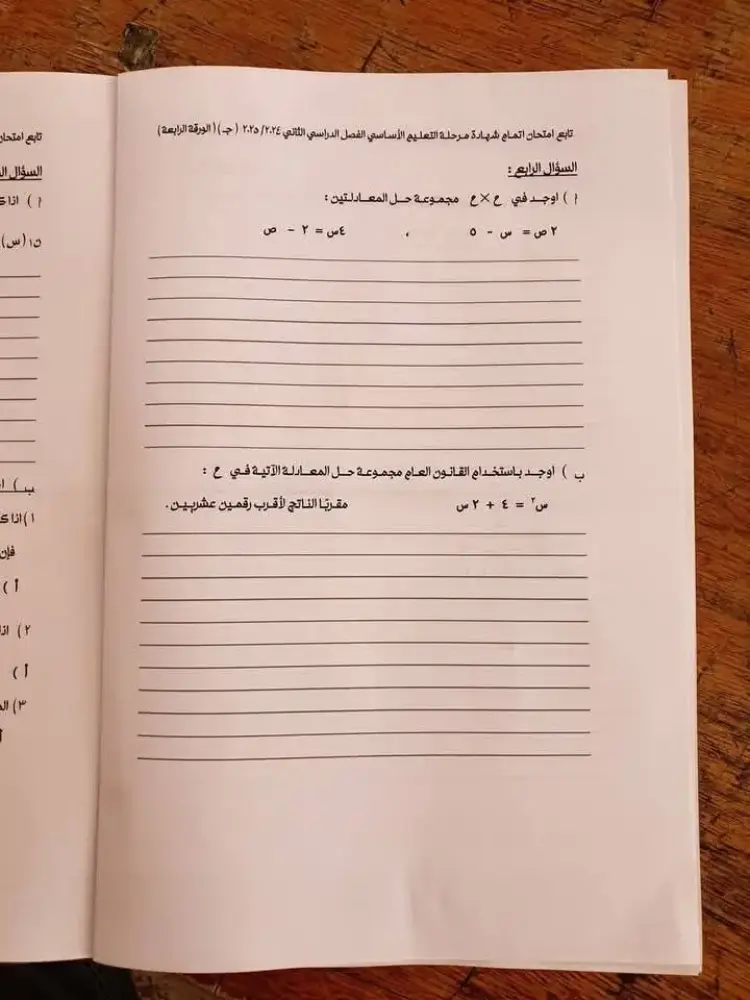 تابع امتحان اتمام شهادة مرحلة التعليم الأساسي الفصل الدراسي الثاني ٢٠٢٤/ ٢٠٢٥ ( جـ ) ( الورقة الرابعة)
السؤال الرابع :
أ ) اوجد في ح × ح مجموعة حل المعادلتين :
٢ ص = س - ٥ ، ٤س = ٢ - ص
ب ) اوجد باستخدام القانون العام مجموعة حل المعادلة الآتية في ح :
س² = ٤ + ٢ س مقربًا الناتج لأقرب رقمين عشريين .
تابع امتحان
السؤال
أ ) اذا
١٥(س)
ب )
١ )اذا ك
فإن
أ )
٢ ) اذا
أ )
٣ )